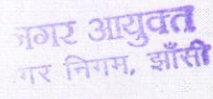 नगर आयुक्त
नगर निगम, झाँसी